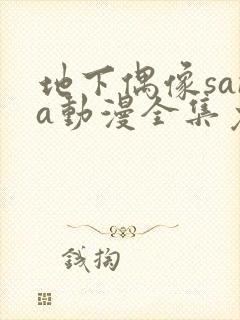 地下偶像sa
a動漫全集
錢掏